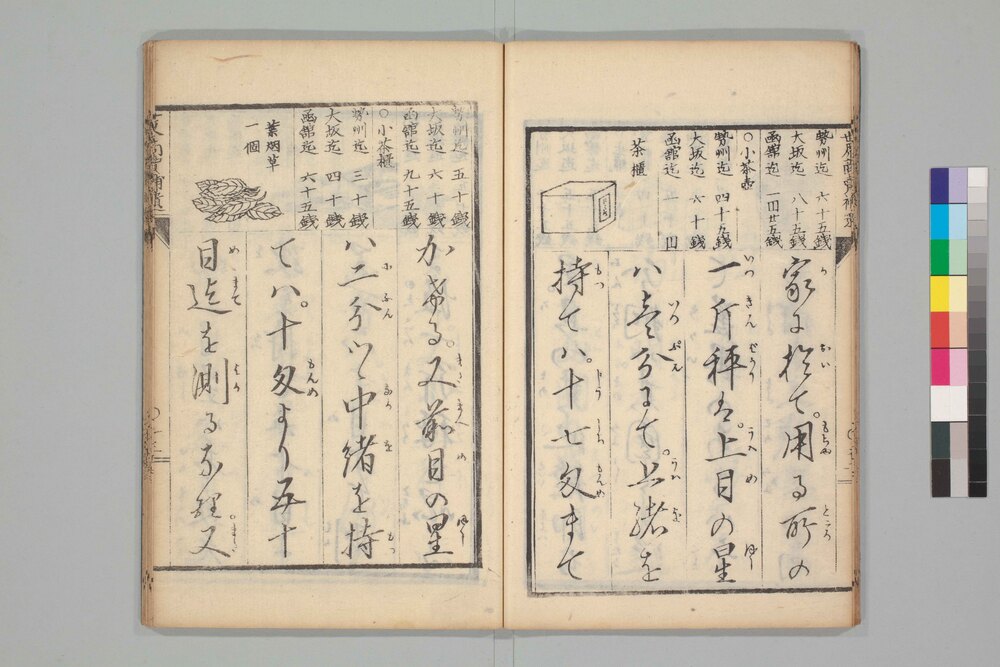 勢州迄 六十五銭
大坂迄 八十五銭
函館迄 一円廿五銭
〇小茶壺
勢州迄 四十五銭
大坂迄 六十銭
函館迄 一円
茶櫃
家に於て。用る所の
一斤秤は。上目の星
ハ壱分にて。上緒を
持てハ。十七匁まて
勢州迄 五十銭
大坂迄 六十銭
函館迄 九十五銭
〇小茶櫃
勢州迄 三十銭
大坂迄 四十銭
函館迄 六十五銭
葉烟草
一個
かきる。又前目の星
ハ二分ツヽ中緒を持
てハ。十匁より五十
目迄を測るなり。又